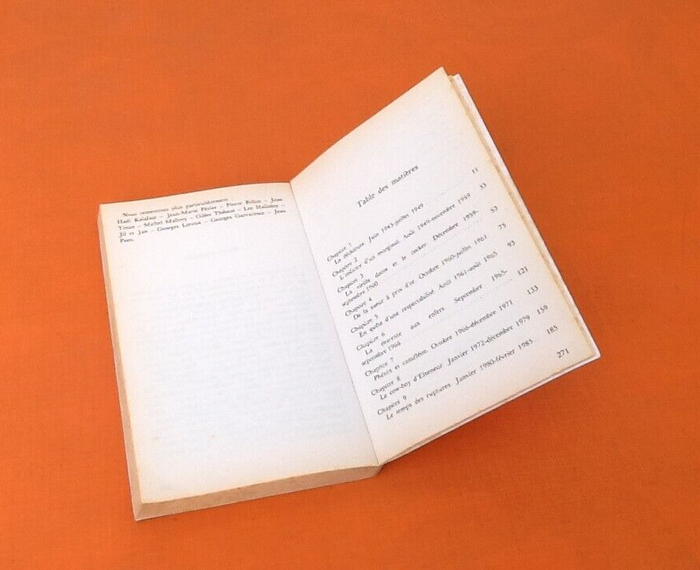 Nous remercions plus particulièrement :
Hadi Kalafate – Jean-Marie Périer – Pierre Billon – Jean
Tosan – Michel Mallory – Gilles Thibaut – Lee Hallyday –
Jil et Jan – Georges Leroux – Georges Garvarentz – Jean
Pons.
Table des matières
Chapitre 1
La déchirure. Juin 1943-juillet 1949 11
Chapitre 2
L'enfance d'un marginal. Août 1949-novembre 1959 33
Chapitre 3
La vieille dame et le rocker. Décembre 1959-
septembre 1960 53
Chapitre 4
De la sueur à prix d'or. Octobre 1960-juillet 1961 75
Chapitre 5
En quête d'une respectabilité. Août 1961-août 1963 93
Chapitre 6
La aux enfers. Septembre 1963-
septembre 1966 121
Chapitre 7
Phénix et caméléon. Octobre 1966-décembre 1971 133
Chapitre 8
Le cow-boy d'Eisenower. Janvier 1972-décembre 1979 159
Chapitre 9
Le temps des ruptures. Janvier 1980-février 1983 185
271